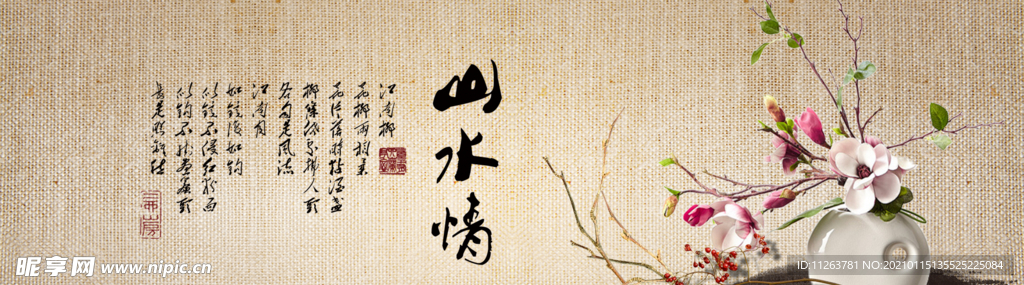 山水情
江南柳
花柳两相柔
花片落时粘酒盏
柳条低处拂人头
各自是风流
江南月
如镜复如钩
似镜不侵红粉面
似钩不挂画帘头
长是照离愁
昵享网 www.nipic.cn
ID:11263781 NO:20210115135525225084